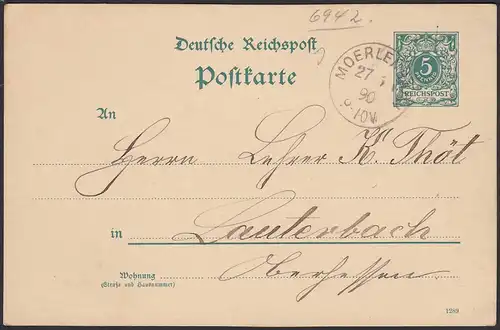 6942.
Deutsche Reichspost
Postkarte
5
REICHSPOST
MOERLE
27
90
9-10V
An
Herrn Lehrer K. Thöt
in Lauterbach
Oberhessen
Wohnung
(Straße und Hausnummer)
1289